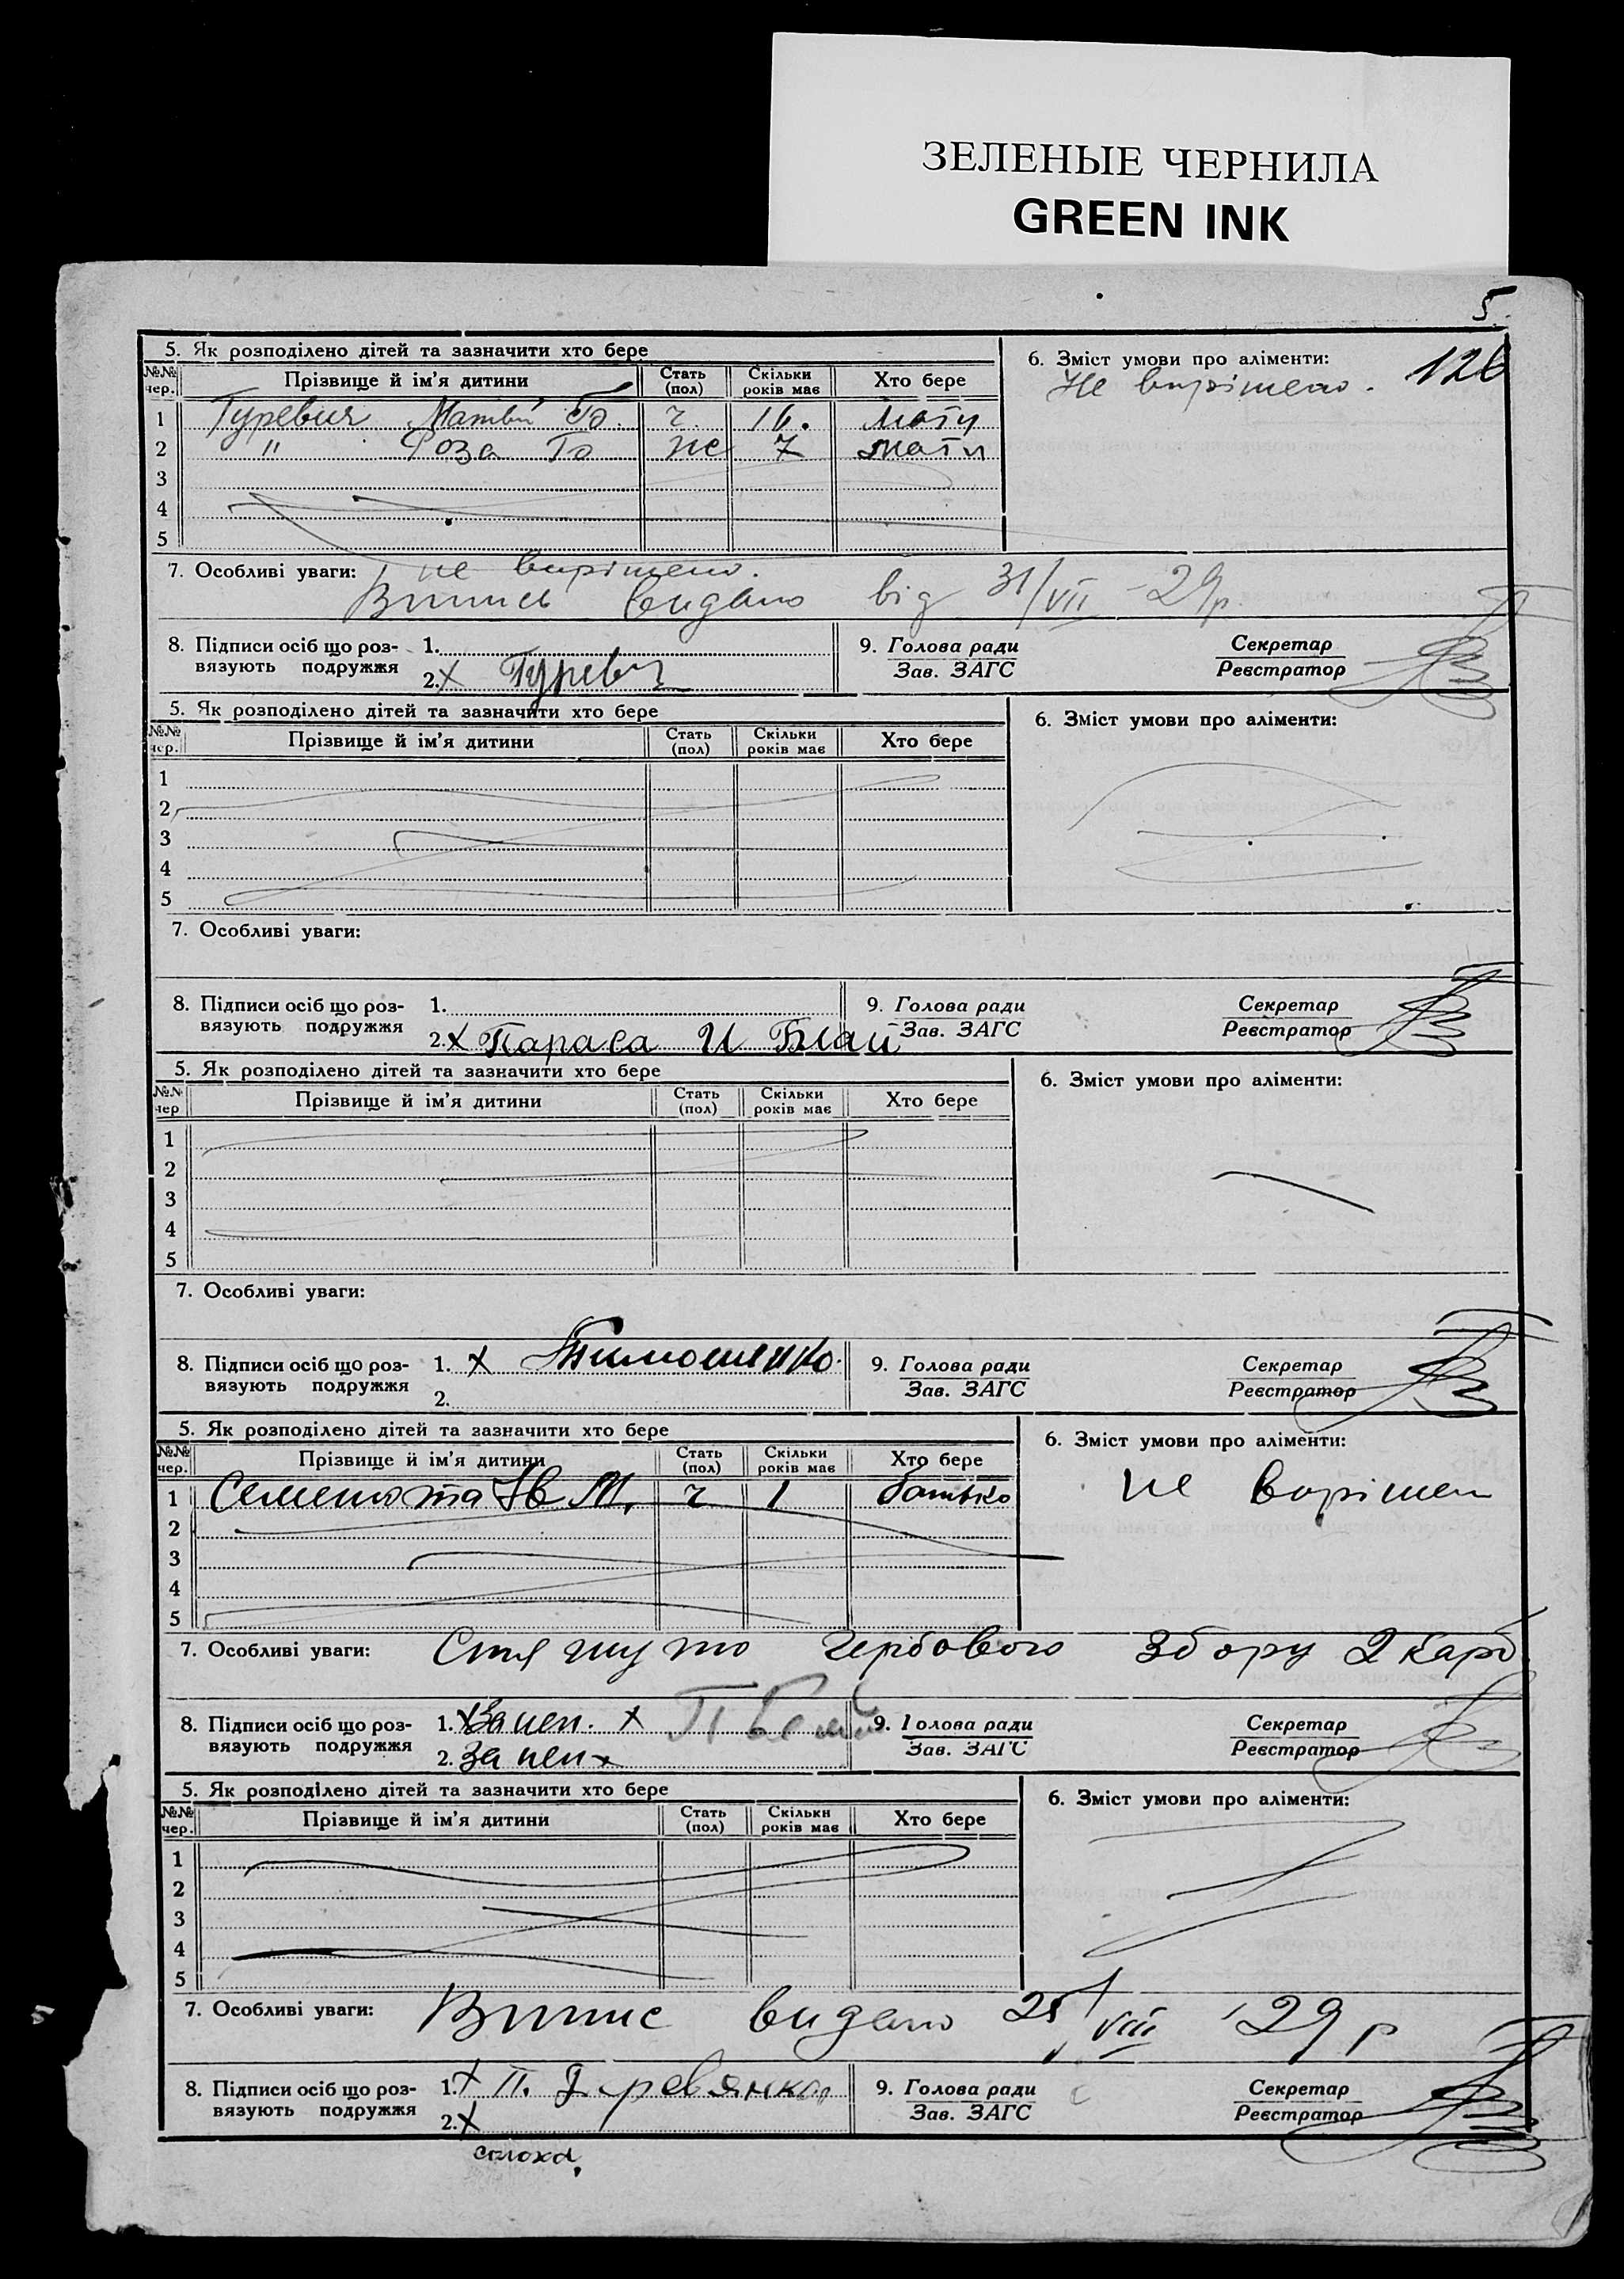 ЗЕЛЕНЫЕ ЧЕРНИЛА
GREEN INK
5.
126
5. Як розподілено дітей та зазначити хто бере
6. Зміст умови про аліменти:
Не вирішено.
№№ чер. Прізвище й ім'я дитини Стать (пол) Скільки років має Хто бере
1 Гуревич Матвій Го. ч. 16. мати
2 " Роза Го же 7 мати
3
4
5
7. Особливі уваги: не вирішено.
Виписъ видано від 31/VII - 29р.
8. Підписи осіб що роз-вязують подружжя
1.
2. х Гуревич
9. Голова ради
Зав. ЗАГС
Секретар
Реєстратор
5. Як розподілено дітей та зазначити хто бере
6. Зміст умови про аліменти:
№№ чер. Прізвище й ім'я дитини Стать (пол) Скільки років має Хто бере
1
2
3
4
5
7. Особливі уваги:
8. Підписи осіб що роз-вязують подружжя
1.
2. х Параса И
9. Голова ради
Зав. ЗАГС
Секретар
Реєстратор
5. Як розподілено дітей та зазначити хто бере
6. Зміст умови про аліменти:
№№ чер Прізвище й ім'я дитини Стать (пол) Скільки років має Хто бере
1
2
3
4
5
7. Особливі уваги:
8. Підписи осіб що роз-вязують подружжя
1. х Тимошенко.
2.
9. Голова ради
Зав. ЗАГС
Секретар
Реєстратор
5. Як розподілено дітей та зазначити хто бере
6. Зміст умови про аліменти:
не вирішен
№№ чер. Прізвище й ім'я дитини Стать (пол) Скільки років має Хто бере
1 Семенота Ів М. ч 1 батько
2
3
4
5
7. Особливі уваги: Стягнуто гербового збору 2 карб.
8. Підписи осіб що роз-вязують подружжя
1. х За неп. х
2. За неп х
9. Голова ради
Зав. ЗАГС
Секретар
Реєстратор
5. Як розподілено дітей та зазначити хто бере
6. Зміст умови про аліменти:
№№ чер. Прізвище й ім'я дитини Стать (пол) Скільки років має Хто бере
1
2
3
4
5
7. Особливі уваги: Випис видано 25/VIII '29 р
8. Підписи осіб що роз-вязують подружжя
1. х П. Деревянко
2. х
9. Голова ради
Зав. ЗАГС
Секретар
Реєстратор
солоха